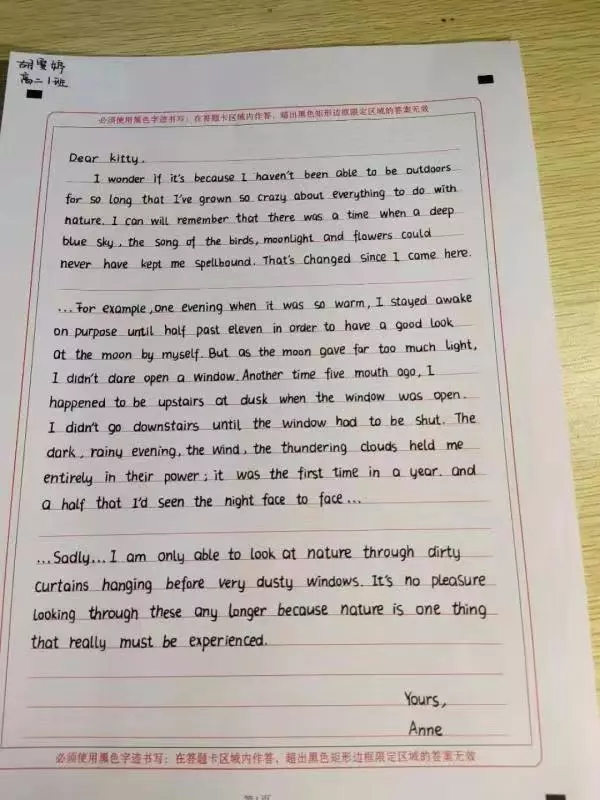 胡雯婷
高二1班
必须使用黑色字迹书写；在答题卡区域内作答，超出黑色矩形边框限定区域的答案无效
Dear kitty,
I wonder if it's because I haven't been able to be outdoors
for so long that I've grown so crazy about everything to do with
nature. I can will remember that there was a time when a deep
blue sky, the song of the birds, moonlight and flowers could
never have kept me spellbound. That's changed since I came here.
...For example, one evening when it was so warm, I stayed awake
on purpose until half past eleven in order to have a good look
at the moon by myself. But as the moon gave far too much light,
I didn't dare open a window. Another time five mouth ago, I
happened to be upstairs at dusk when the window was open.
I didn't go downstairs until the window had to be shut. The
dark, rainy evening, the wind, the thundering clouds held me
entirely in their power; it was the first time in a year. and
a half that I'd seen the night face to face...
...Sadly... I am only able to look at nature through dirty
curtains hanging before very dusty windows. It's no pleasure
looking through these any longer because nature is one thing
that really must be experienced.
Yours,
Anne
必须使用黑色字迹书写；在答题卡区域内作答，超出黑色矩形边框限定区域的答案无效